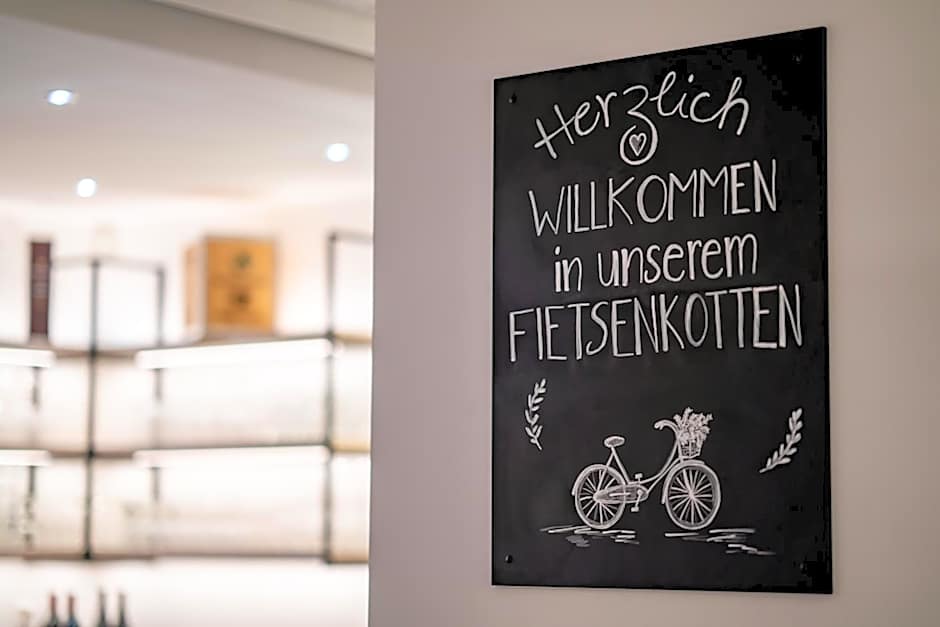 Herzlich
WILLKOMMEN
in unserem
FIETSENKOTTEN